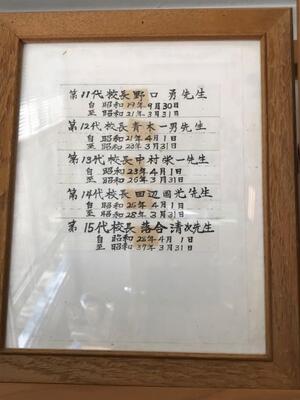 第11代校長野口 勇先生
自 昭和19年9月30日
至 昭和21年3月31日
第12代校長青木一男先生
自 昭和21年4月1日
至 昭和23年3月31日
第13代校長中村栄一先生
自 昭和23年4月1日
至 昭和25年3月31日
第14代校長田辺国光先生
自 昭和25年4月1日
至 昭和28年3月31日
第15代校長落合清次先生
自 昭和28年4月1日
至 昭和37年3月31日